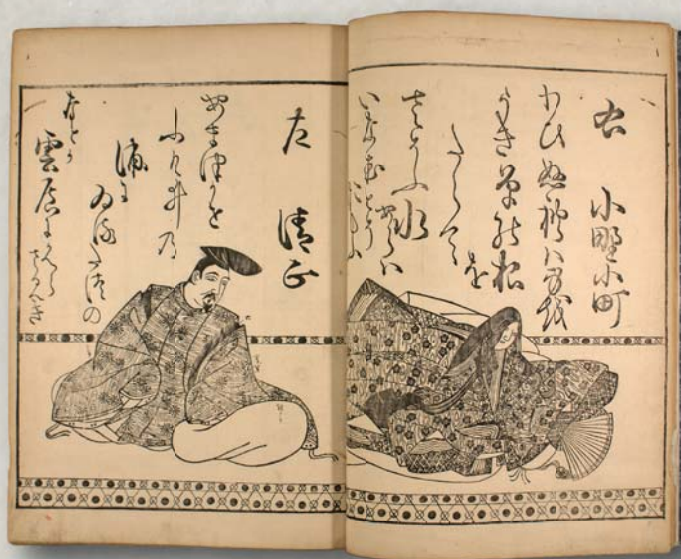 右 小野小町
わひぬれハ身越
うき草能根を
たえて
さそふ水
あらハ
いなむとそ
左 清正
あま津かせ
ふけ井乃
浦に
ゐるたつの
なとか
雲居にかへら
さるへき